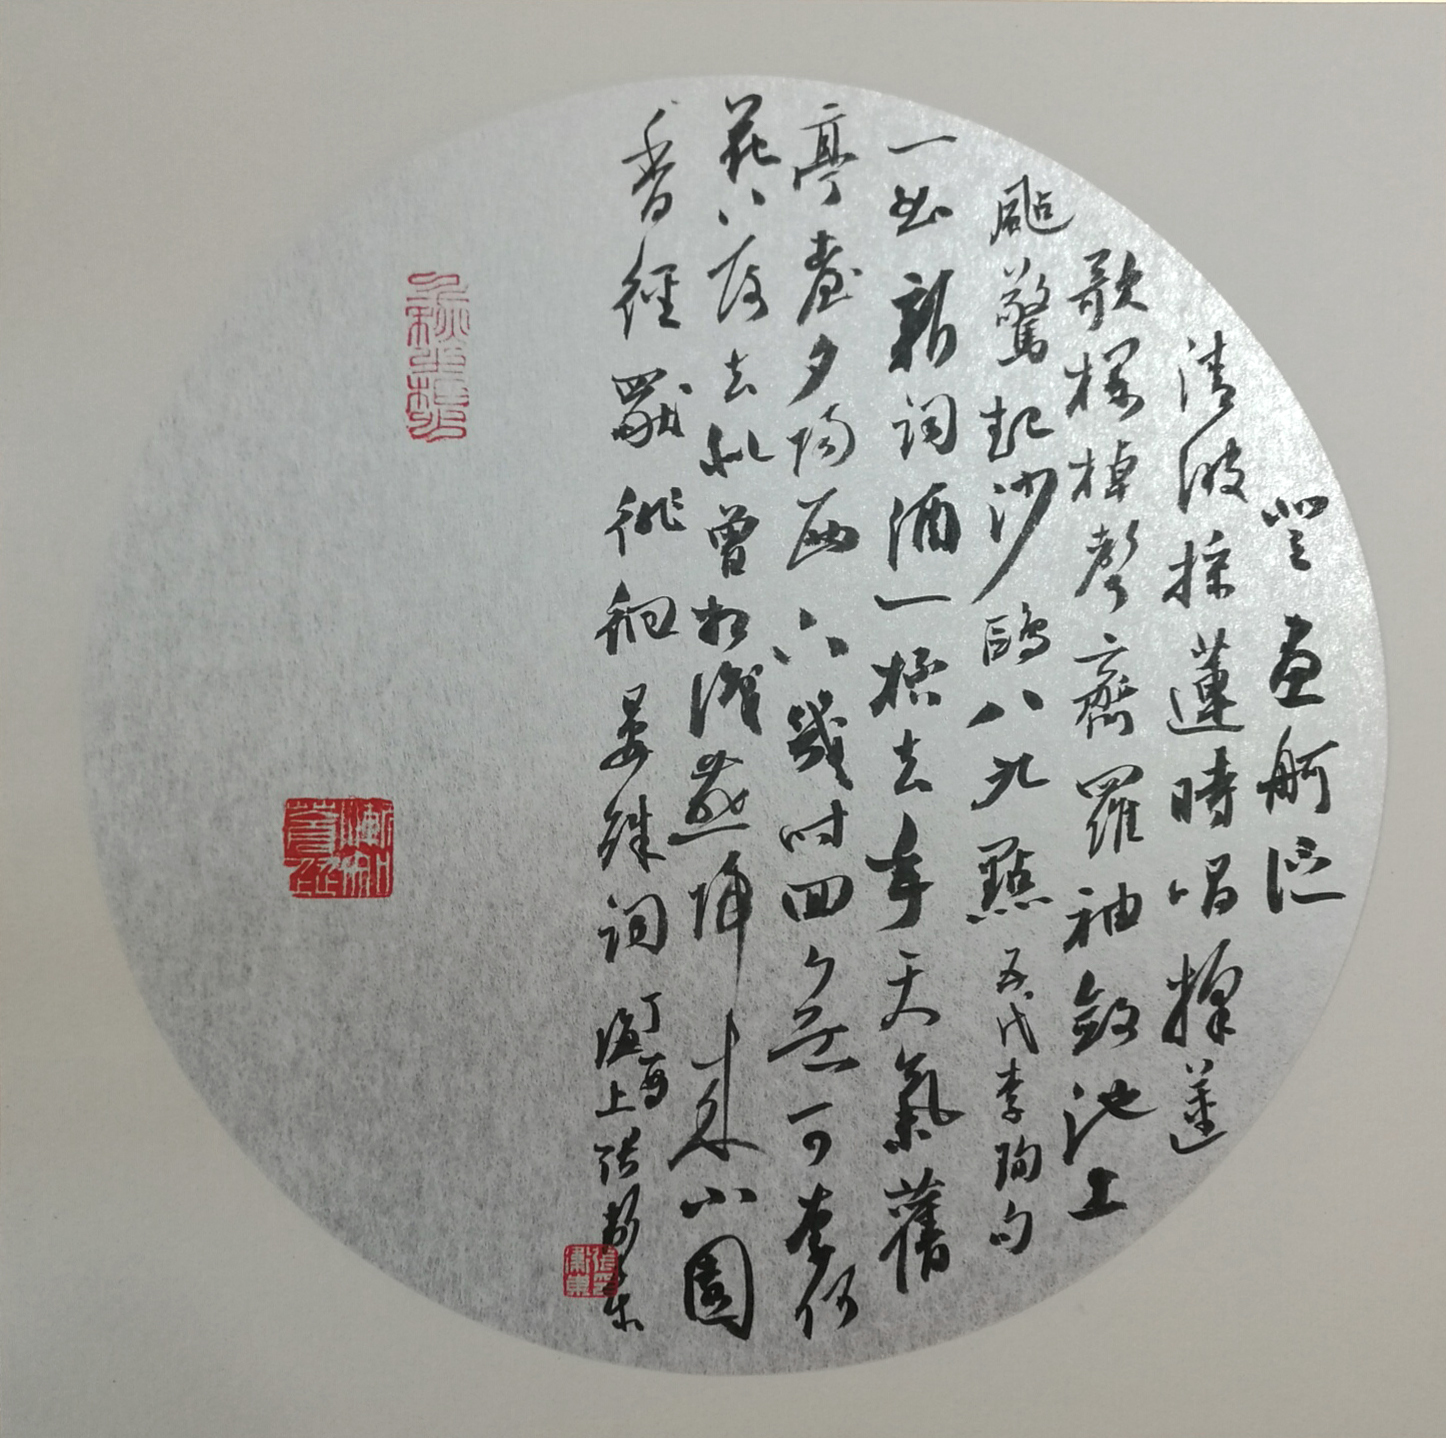 登畫舸泛
清波採蓮時唱採蓮
歌欄棹聲齊羅袖斂池上
颭驚起沙鷗八九點五代李珣句
一曲新詞酒一杯去年天氣舊
亭臺夕陽西下幾时回無可奈何
花落去似曾相識燕歸來小園
香徑獨徘徊晏殊詞丁酉
海上張衛東